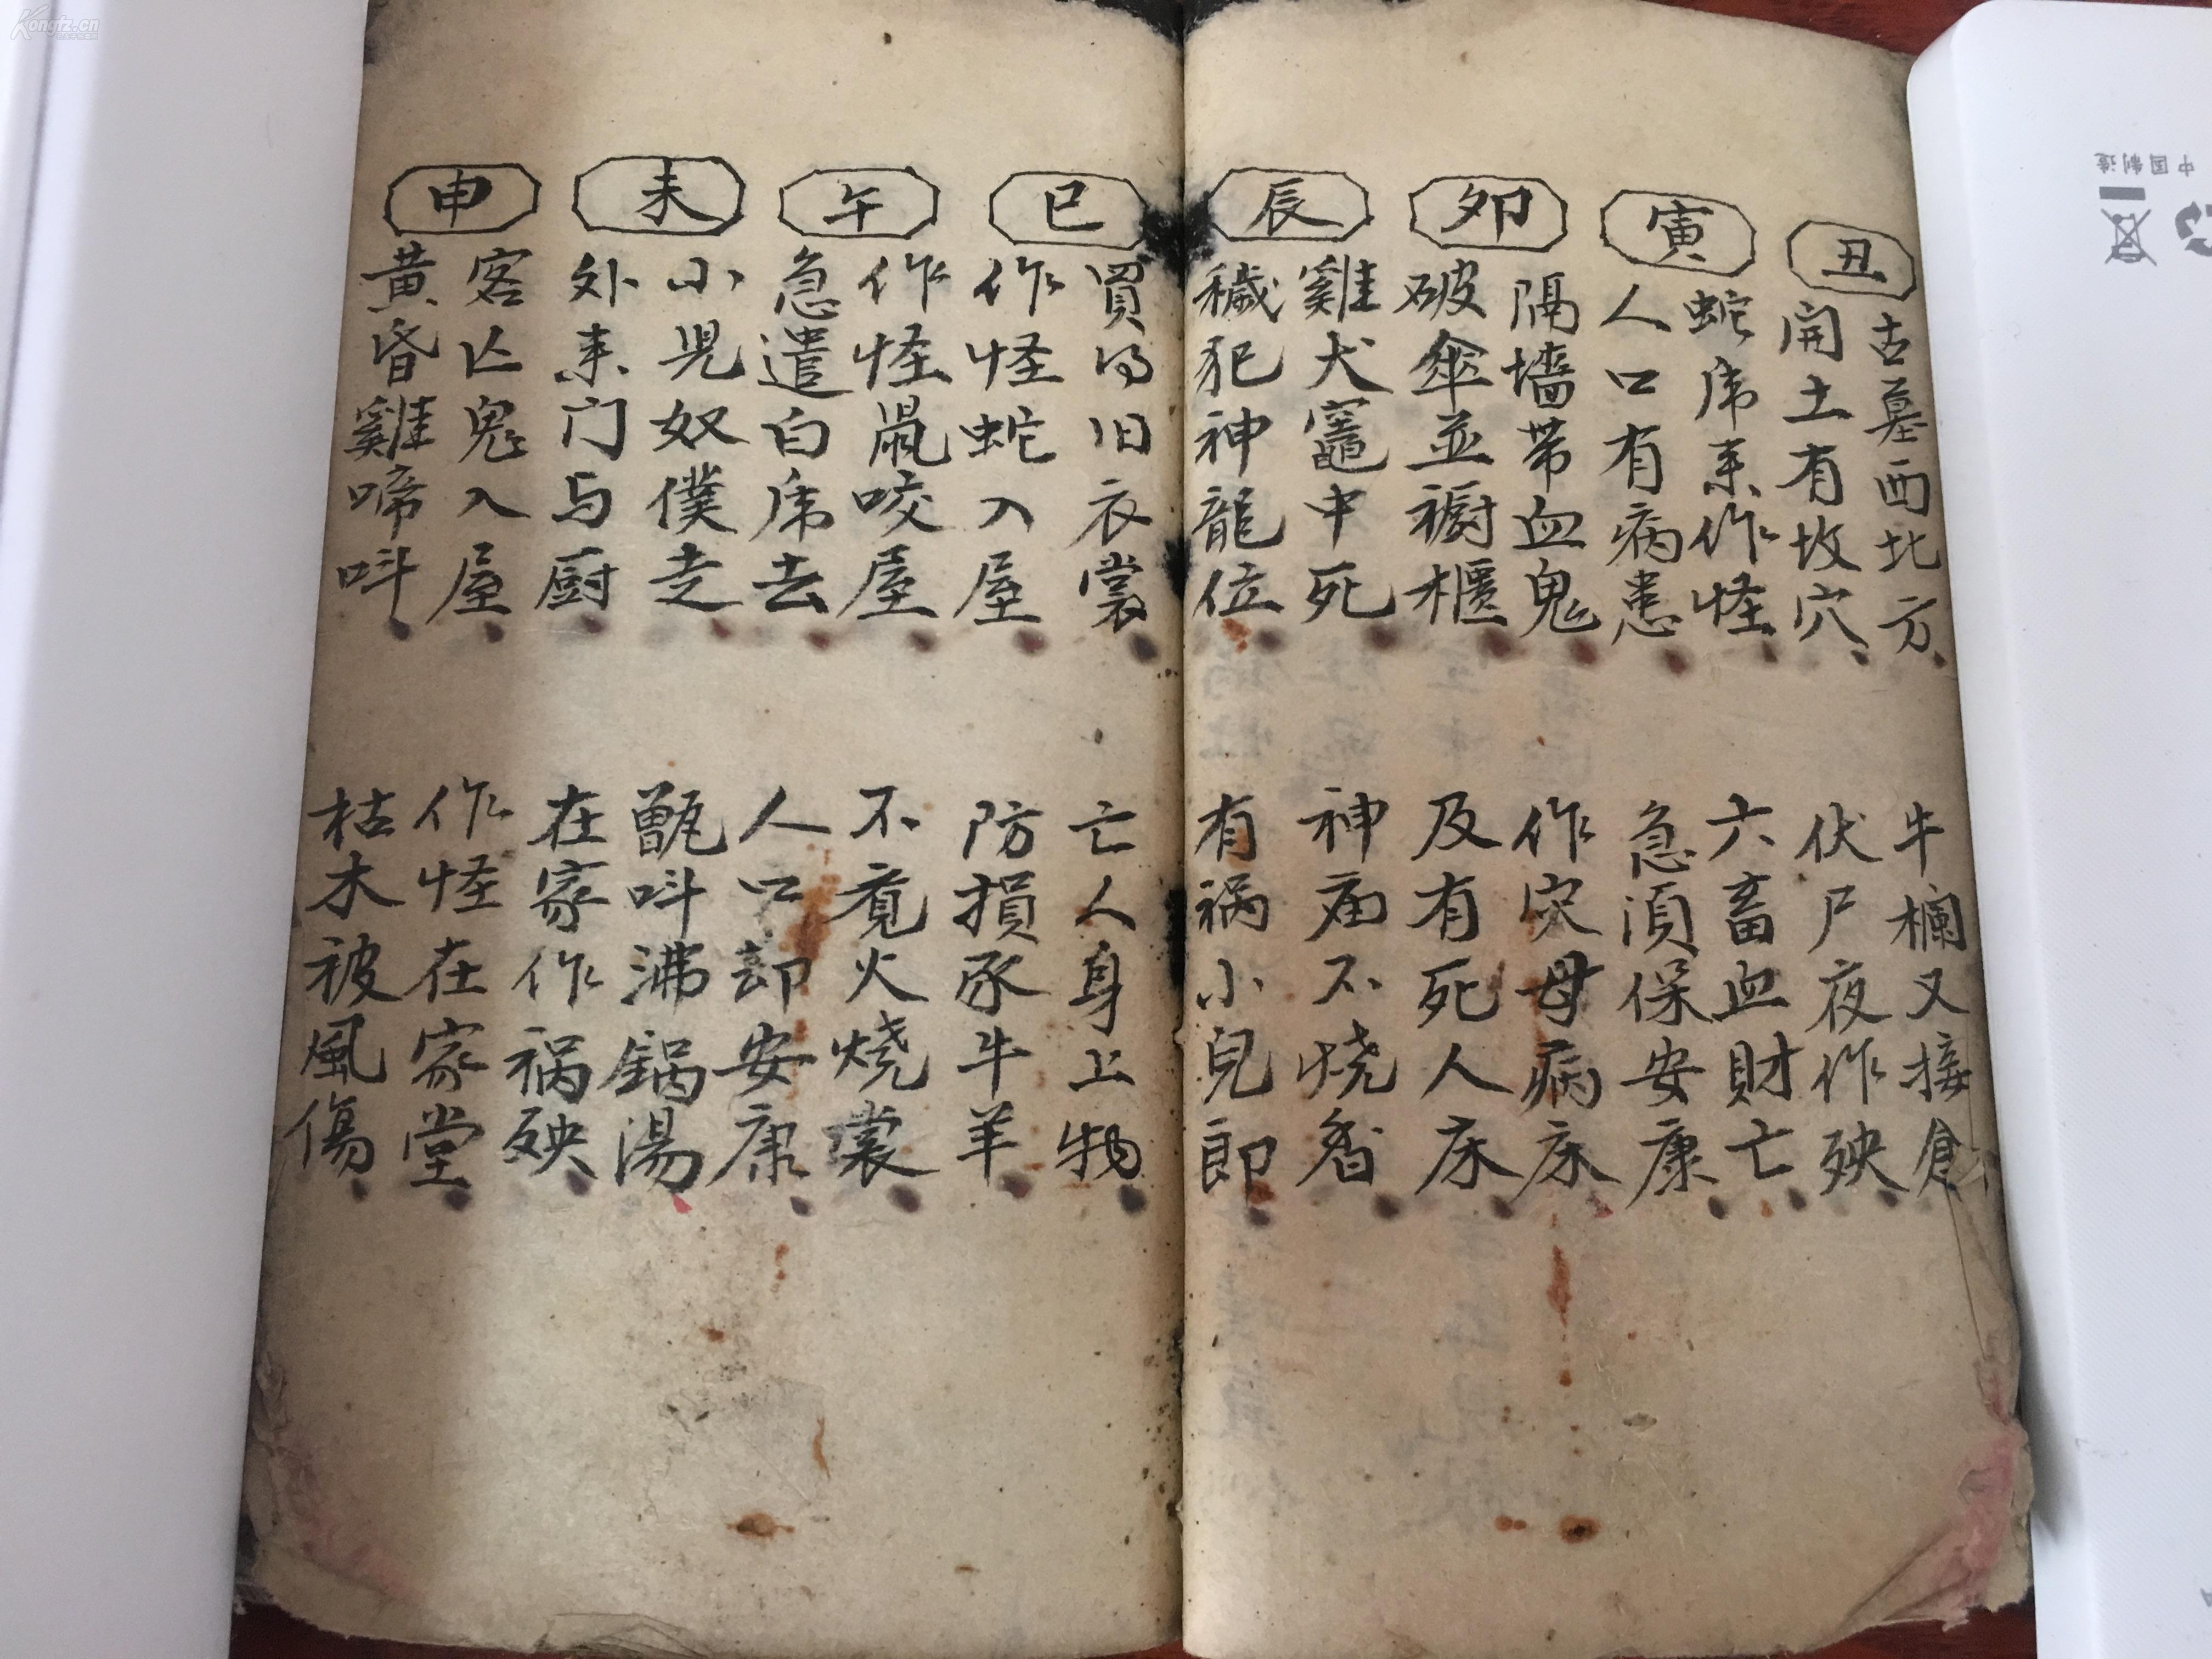 Kongfz.cn
丑
古墓西北方
牛欄又接倉
開土有坟穴
伏尸夜作殃
寅
蛇虎来作怪
六畜血財亡
人口有病患
急須保安康
卯
隔墙带血鬼
作灾母病床
破傘並櫥櫃
及有死人床
辰
雞犬竈中死
神庙不烧香
穢犯神龍位
有祸小兒郎
巳
買得旧衣裳
亡人身上物
作怪蛇入屋
防損豕牛羊
午
作怪鼠咬屋
不覓火烧裳
急遣白虎去
人口却安康
未
小児奴僕走
甑呌沸鍋湯
外来门与厨
在家作祸殃
申
客亡鬼入屋
作怪在家堂
黄昏雞啼呌
枯木被風傷
中国制造